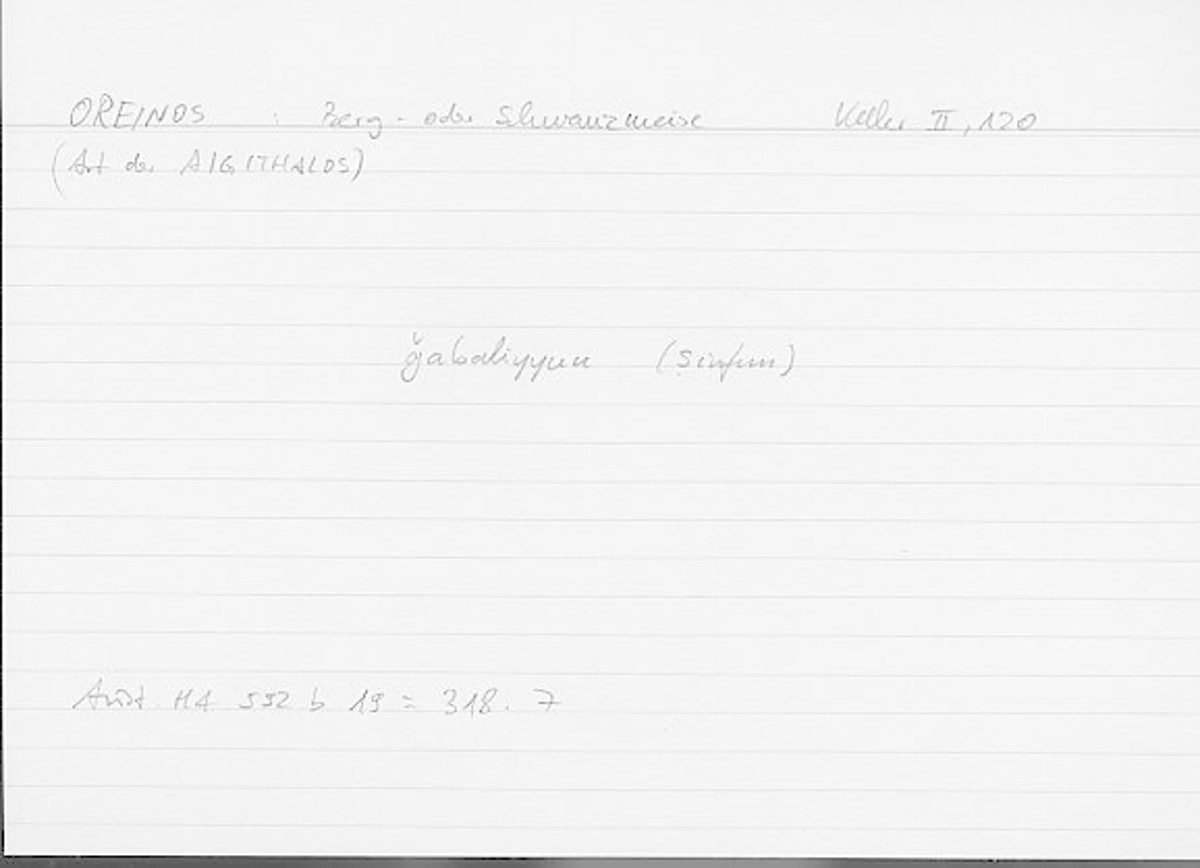 OREINOS : Berg- oder Schwanzmeise Keller II, 120
(Art der AIGITHALOS)
ǧabaliyyun (ṣinfun)
Arist. HA 592 b 19 = 318. 7